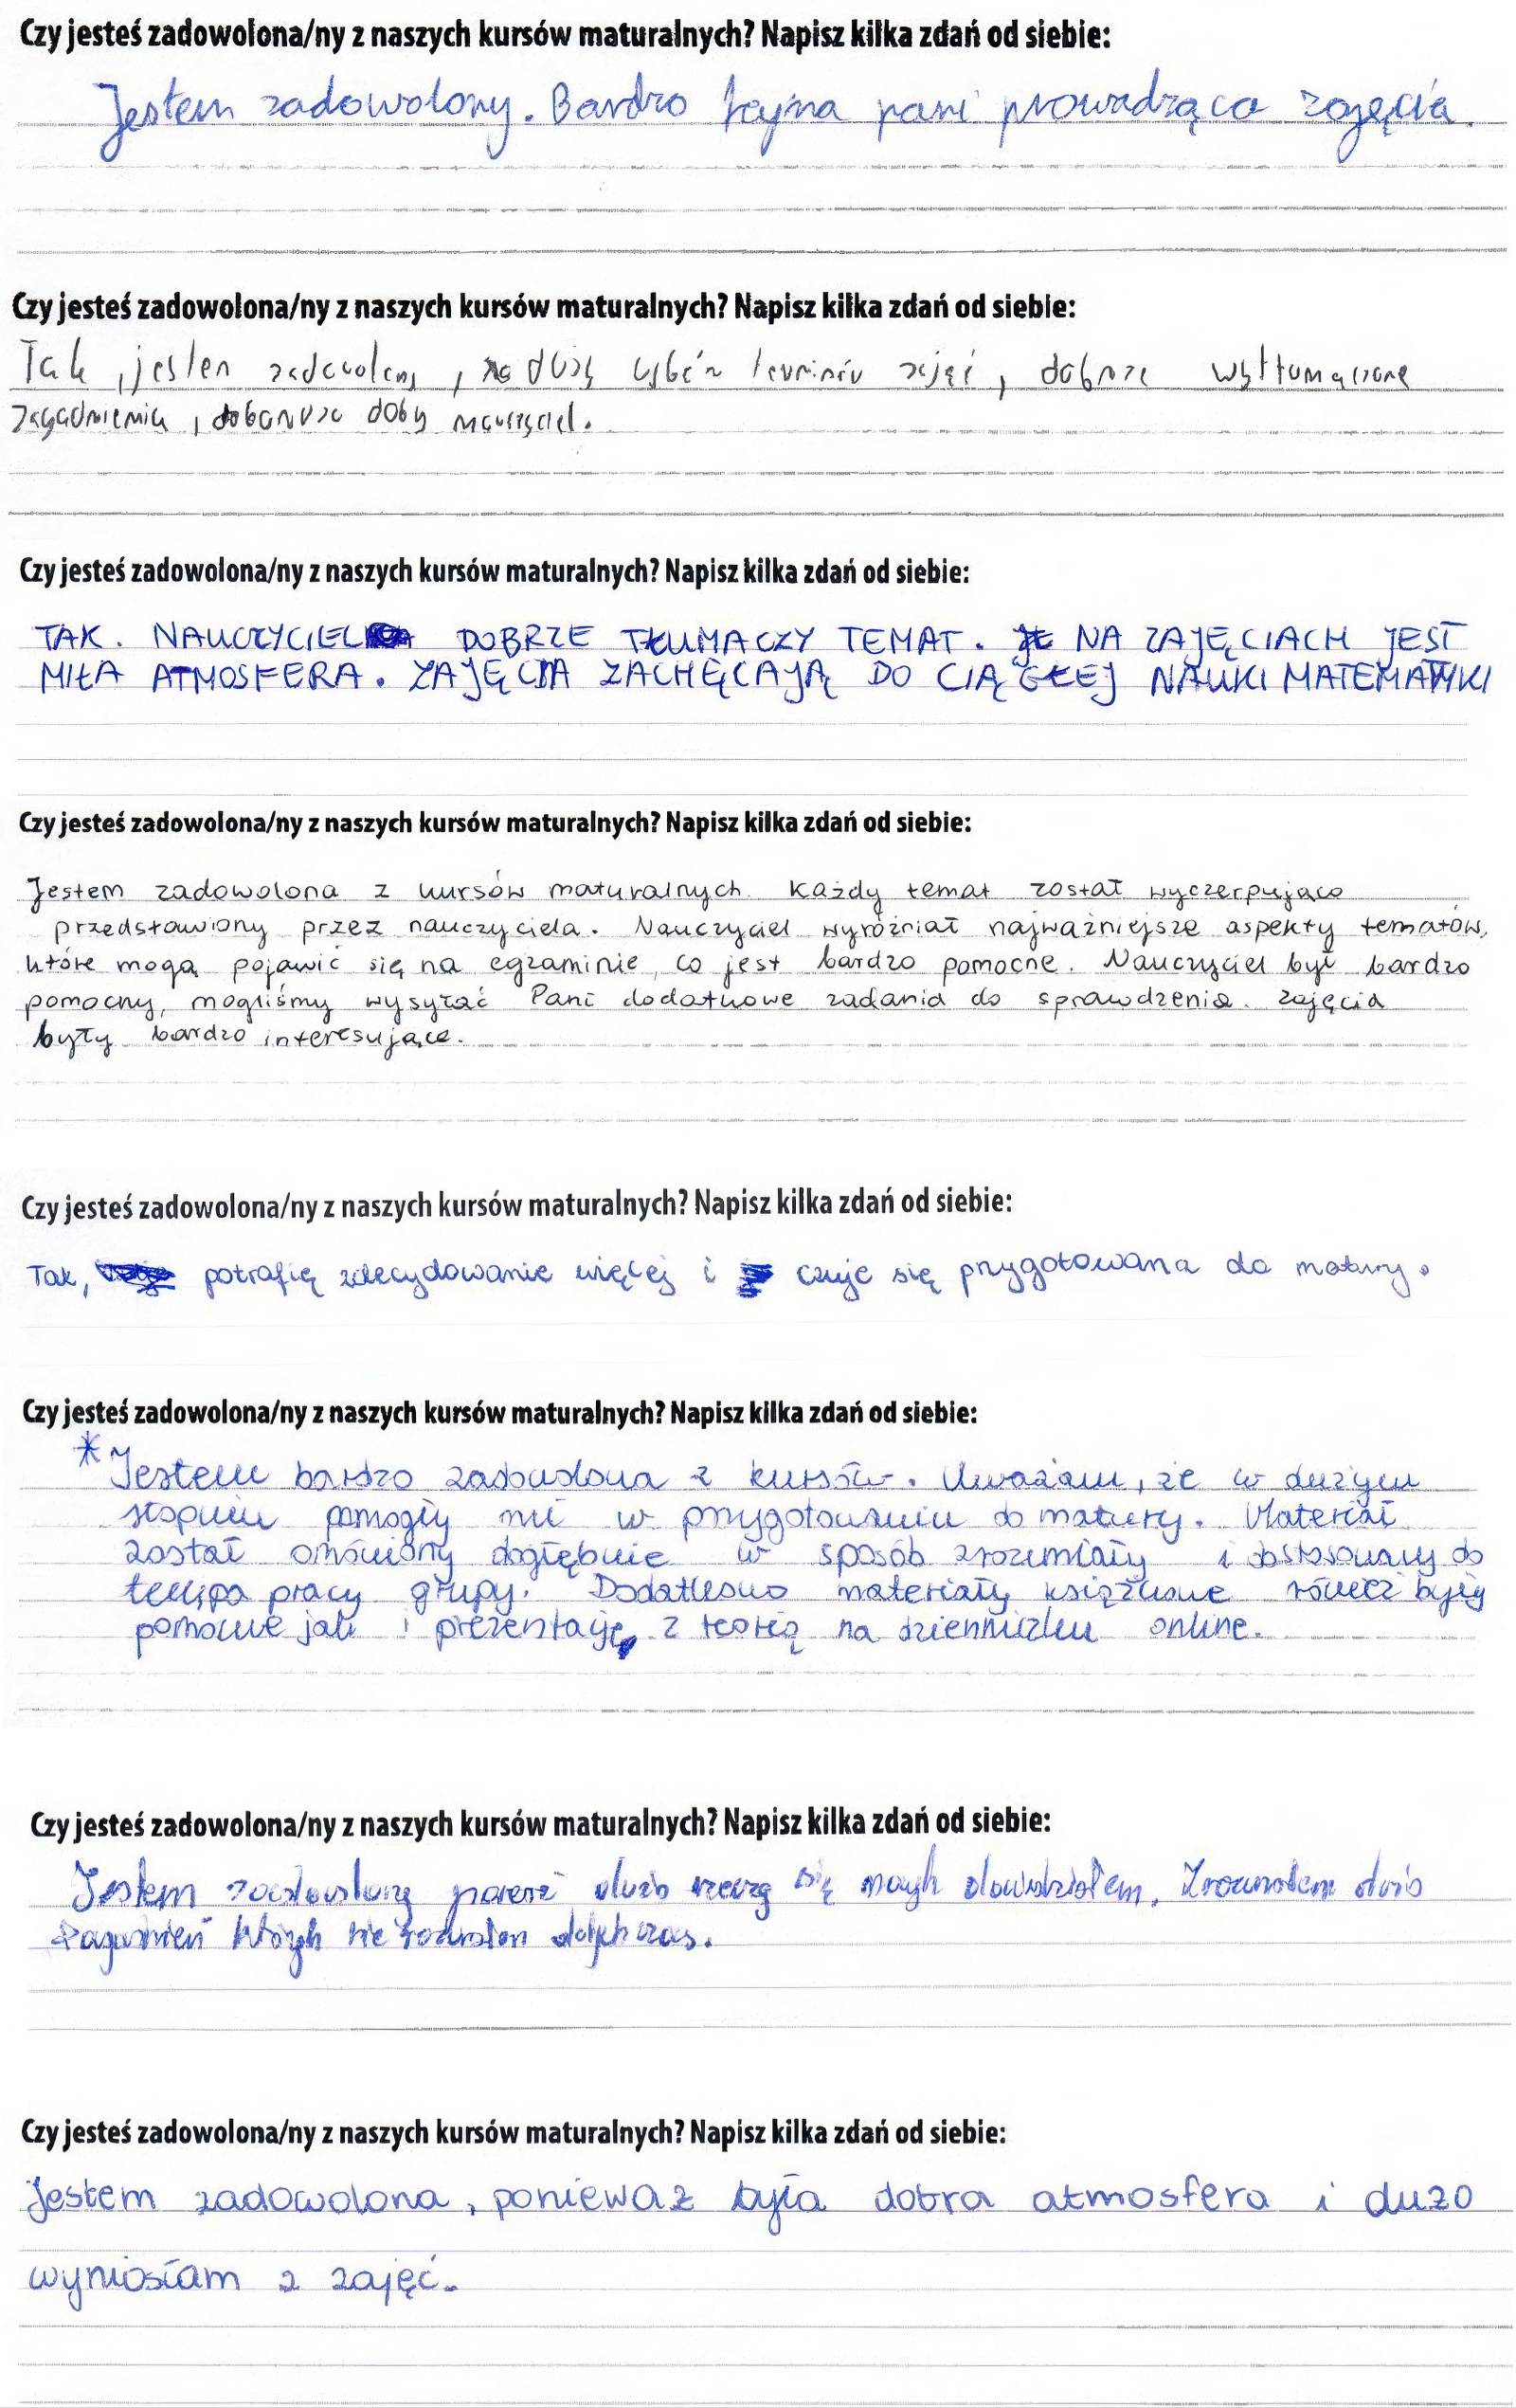 Czy jesteś zadowolona/ny z naszych kursów maturalnych? Napisz kilka zdań od siebie:
Jestem zadowolony. Bardzo fajna pani prowadząca zajęcia.
Czy jesteś zadowolona/ny z naszych kursów maturalnych? Napisz kilka zdań od siebie:
Tak, jestem zadowolony, duży wybór terminów zajęć, dobrze wytłumaczone
zagadnienia, doby nauczyciel.
Czy jesteś zadowolona/ny z naszych kursów maturalnych? Napisz kilka zdań od siebie:
TAK. NAUCZYCIEL DOBRZE TŁUMACZY TEMAT. NA ZAJĘCIACH JEST
MIŁA ATMOSFERA. ZAJĘCIA ZACHĘCAJĄ DO CIĄGŁEJ NAUKI MATEMATYKI
Czy jesteś zadowolona/ny z naszych kursów maturalnych? Napisz kilka zdań od siebie:
Jestem zadowolona z kursów maturalnych. Każdy temat został wyczerpująco
przedstawiony przez nauczyciela. Nauczyciel wyróżniał najważniejsze aspekty tematów,
które mogą pojawić się na egzaminie, co jest bardzo pomocne. Nauczyciel był bardzo
pomocny, mogliśmy wysyłać Pani dodatkowe zadania do sprawdzenia. Zajęcia
były bardzo interesujące.
Czy jesteś zadowolona/ny z naszych kursów maturalnych? Napisz kilka zdań od siebie:
Tak, potrafię zdecydowanie więcej i czuje się przygotowana do matury.
Czy jesteś zadowolona/ny z naszych kursów maturalnych? Napisz kilka zdań od siebie:
*Jestem bardzo zadowolona z kursów. Uważam, że w dużym
stopniu pomogły mi w przygotowaniu do matury. Materiał
został omówiony dogłębnie w sposób zrozumiały i dostosowany do
tempa pracy grupy. Dodatkowo materiały książkowe również były
pomocne jak i prezentacje z teorią na dzienniczku online.
Czy jesteś zadowolona/ny z naszych kursów maturalnych? Napisz kilka zdań od siebie:
Jestem zadowolony dużo rzeczy się dowiedziałem. Zrozumiałem dużo
zagadnień których nie rozumiałem dotychczas.
Czy jesteś zadowolona/ny z naszych kursów maturalnych? Napisz kilka zdań od siebie:
Jestem zadowolona, ponieważ była dobra atmosfera i dużo
wyniosłam z zajęć.